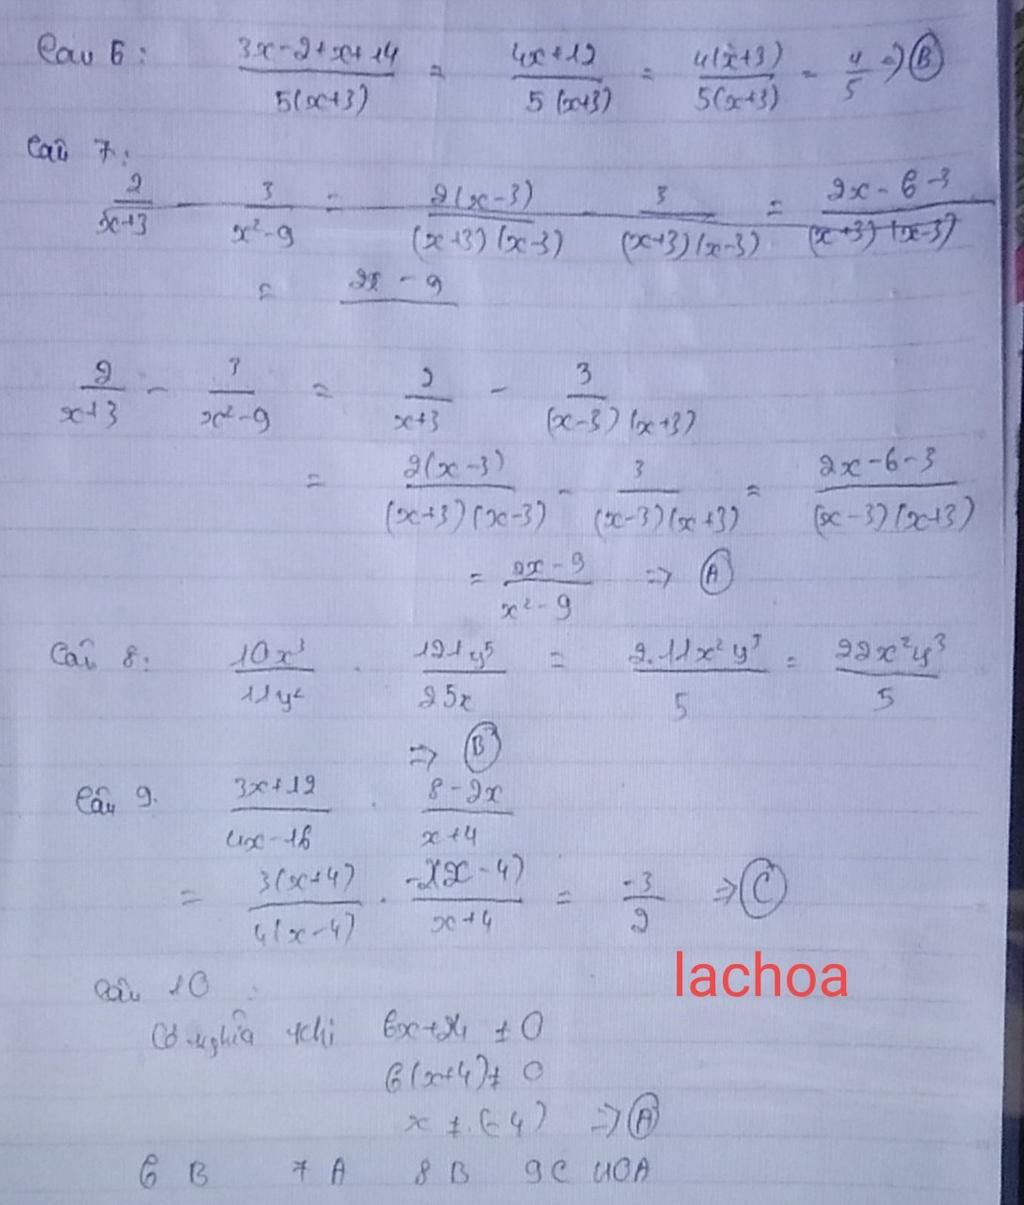 Câu 6: (3x-2+x+14)/(5(x+3)) = (4x+12)/(5(x+3)) = (4(x+3))/(5(x+3)) = 4/5 => B
Câu 7:
2/(x+3) - 3/(x²-9) = (2(x-3))/((x+3)(x-3)) - 3/((x+3)(x-3)) = (2x-6-3)/((x+3)(x-3))
= 2x-9
2/(x+3) - 3/(x²-9) = 2/(x+3) - 3/((x-3)(x+3))
= (2(x-3))/((x+3)(x-3)) - 3/((x-3)(x+3)) = (2x-6-3)/((x-3)(x+3))
= (2x-9)/(x²-9) => A
Câu 8: (10x³)/(11y²) . (121y⁵)/(25x) = (2.11x²y³)/5 = (22x²y³)/5
=> B
Câu 9. (3x+12)/(4x-16) . (8-2x)/(x+4)
= (3(x+4))/(4(x-4)) . (-2(x-4))/(x+4) = -3/2 => C
lachoa
Câu 10
Có nghĩa khi 6x+24 ≠ 0
6(x+4) ≠ 0
x ≠ (-4) => A
6 B 7 A 8 B 9 C 10A